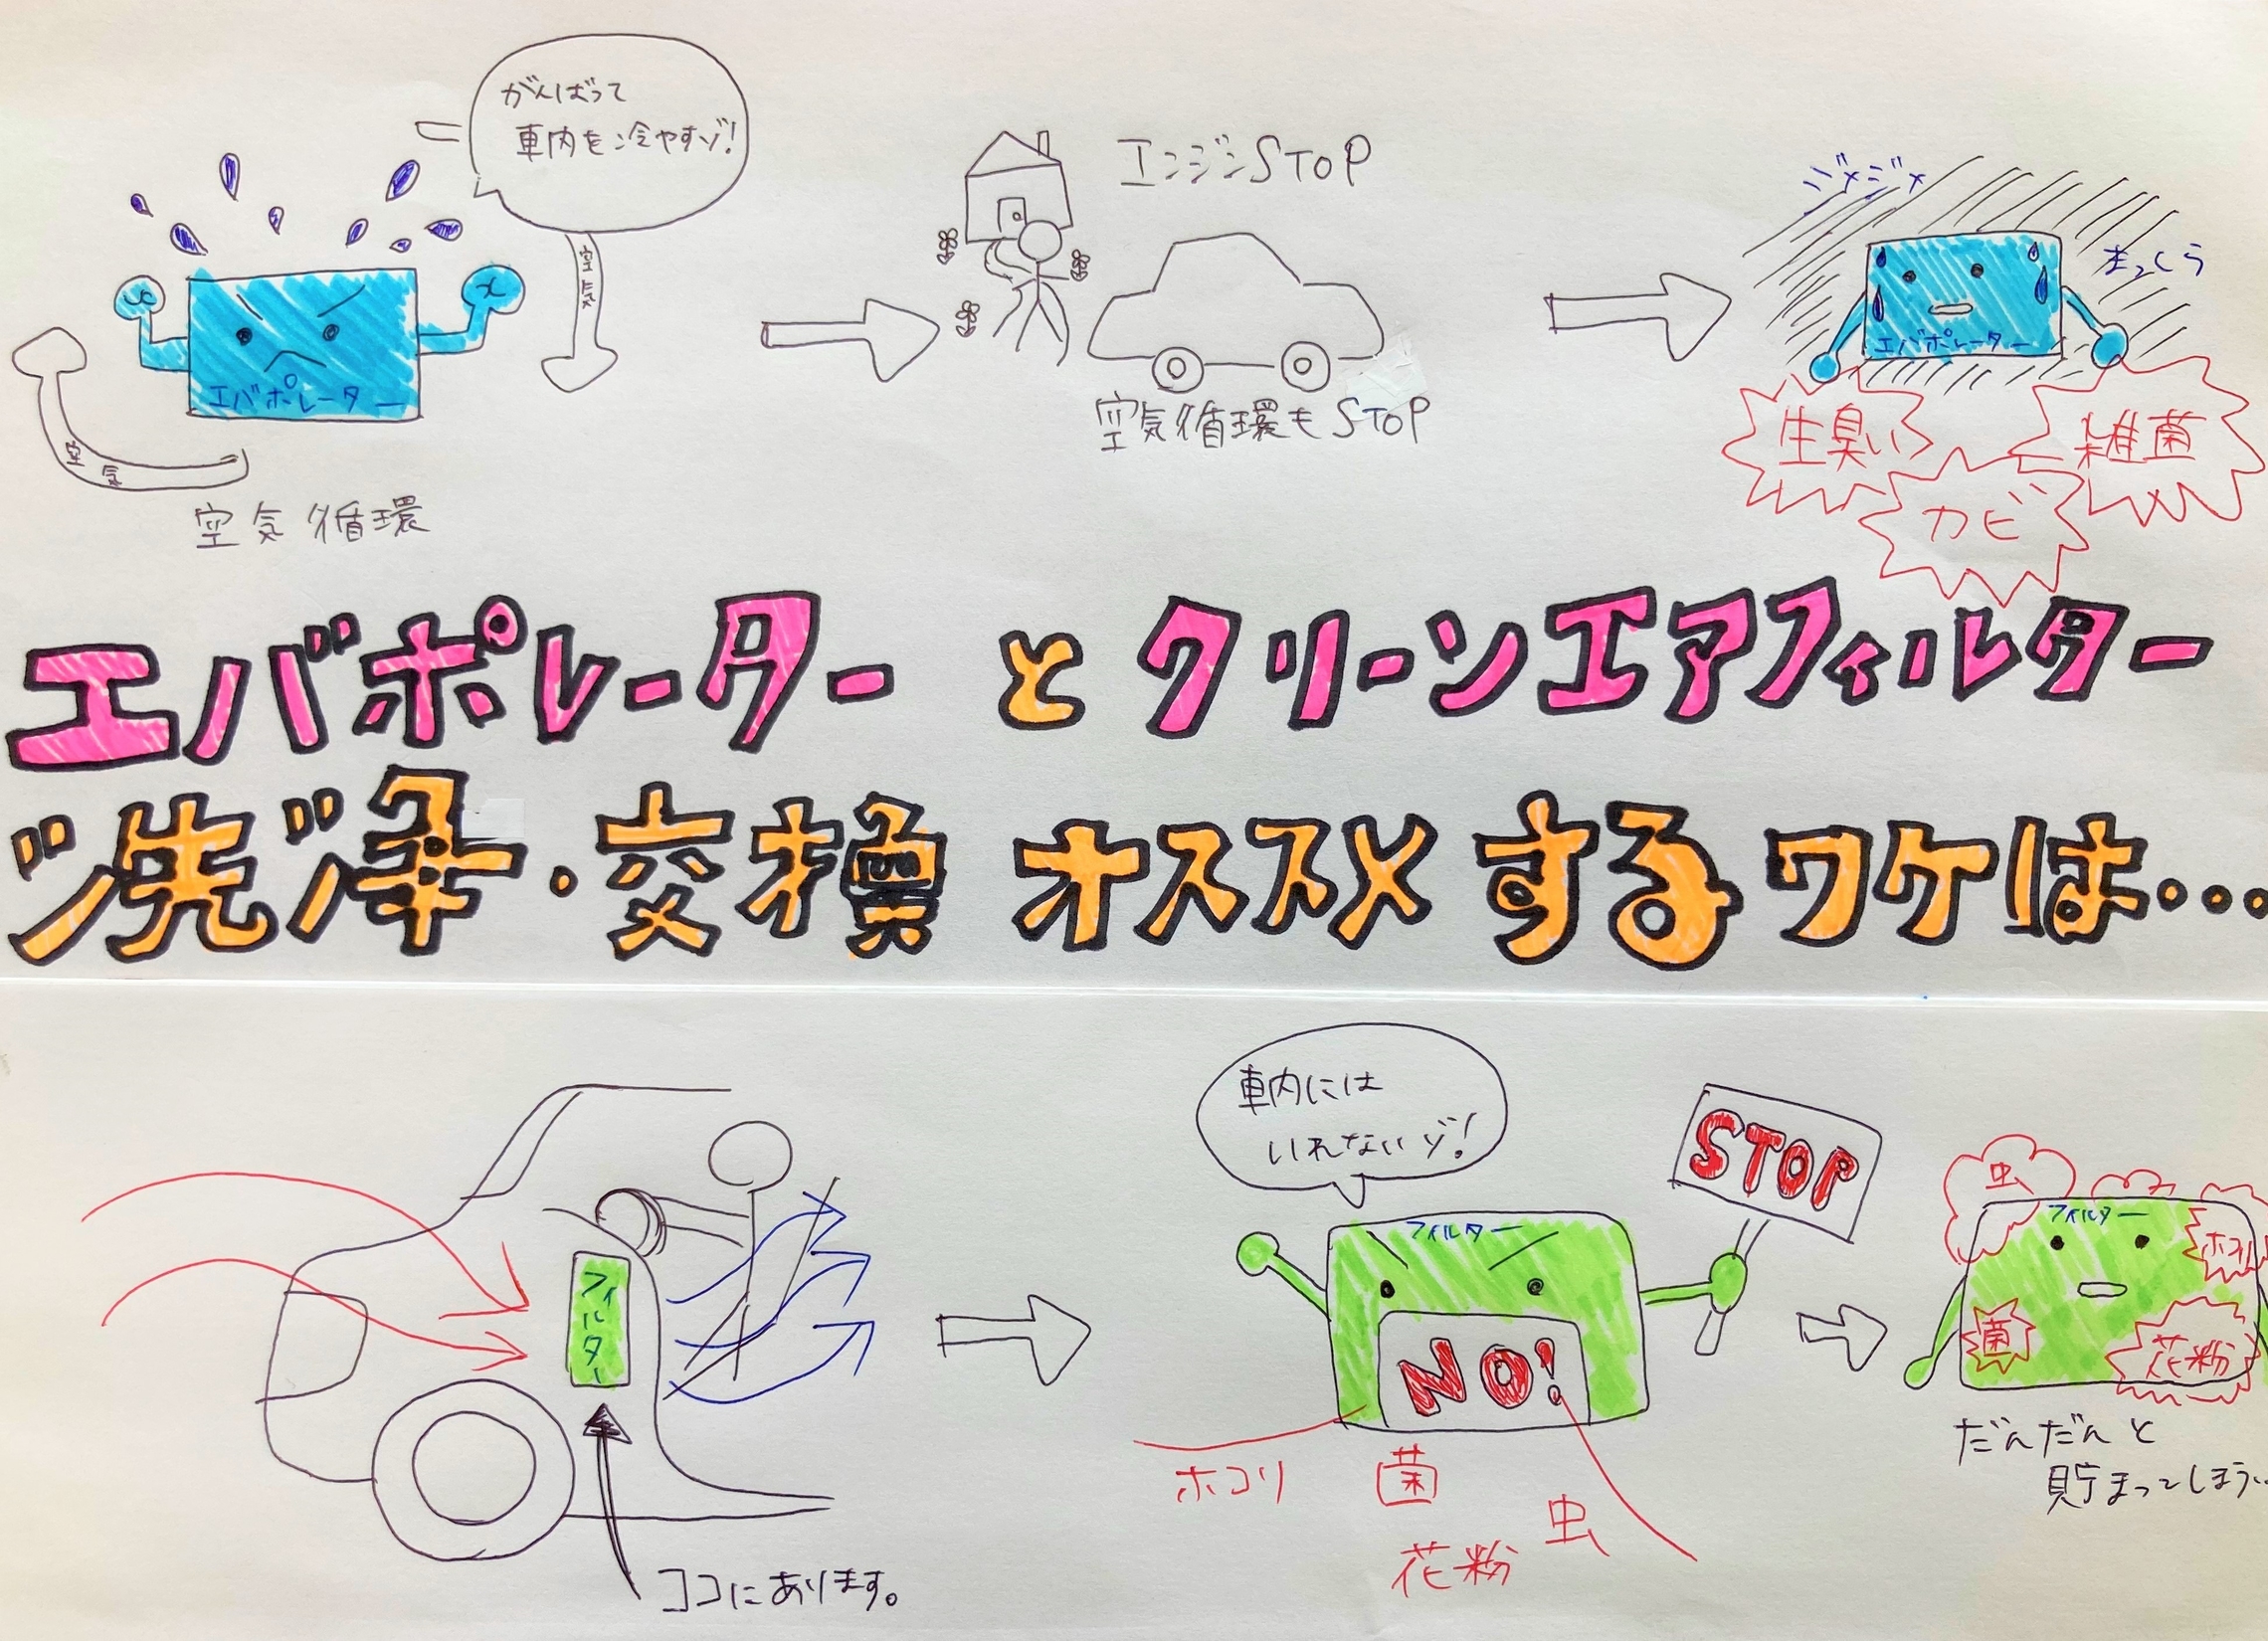 がんばって
車内を冷やすゾ!
空気
エバポレーター
空気
空気循環
エンジンSTOP
空気循環もSTOP
ジメジメ
まっくら
エバポレーター
生臭い
雑菌
カビ
エバポレーターとクリーンエアフィルター
洗浄・交換オススメするワケは・・・
フィルター
ココにあります。
車内には
いれないゾ!
STOP
フィルター
NO!
ホコリ
菌
虫
花粉
虫
フィルター
ホコリ
菌
花粉
だんだんと
貯まってしまう・・